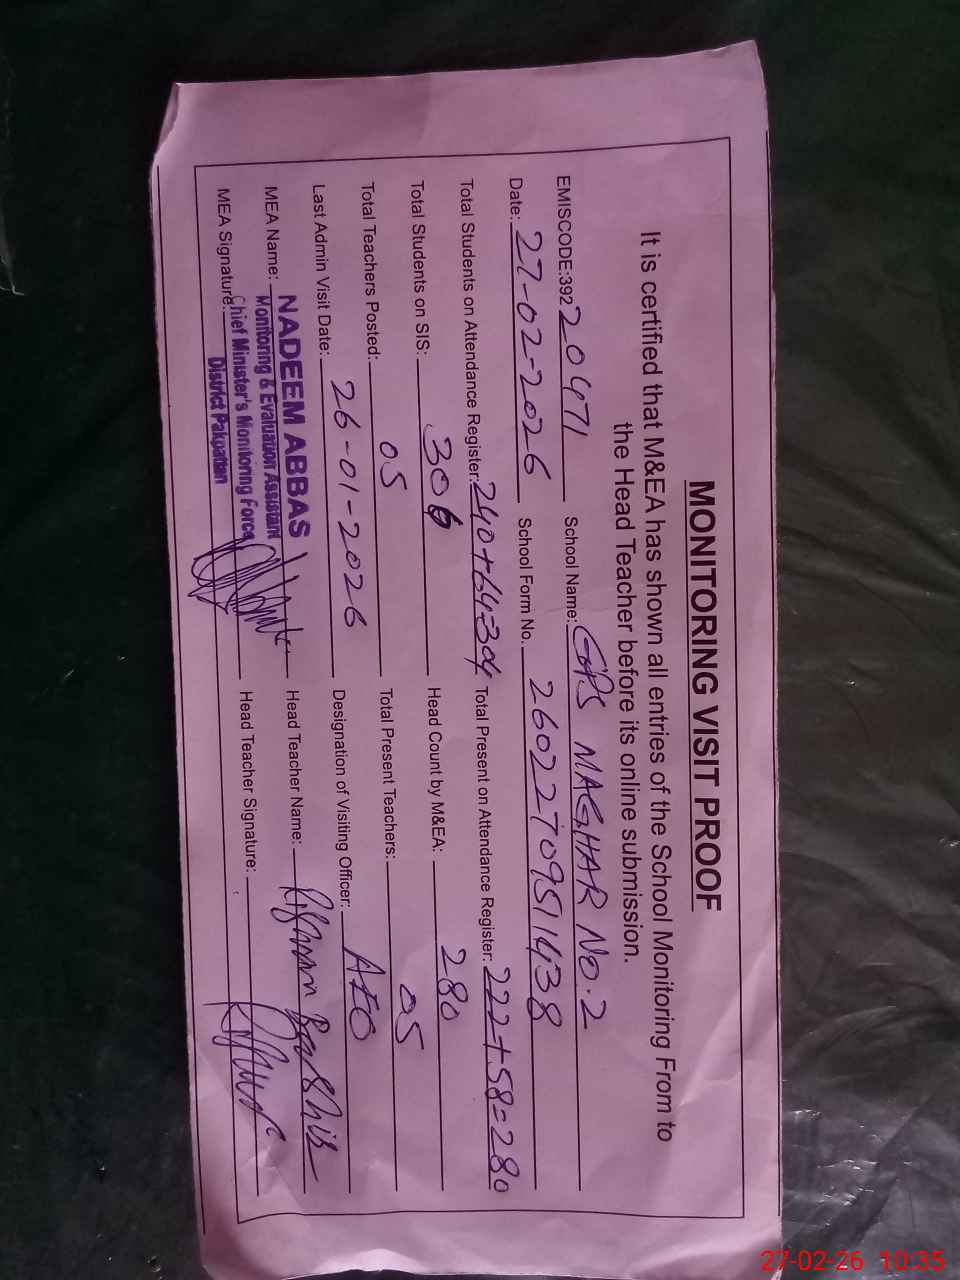 MONITORING VISIT PROOF
It is certified that M&EA has shown all entries of the School Monitoring From to
the Head Teacher before its online submission.
EMISCODE:392 20471 School Name: GPS MAGHAR No. 2
Date: 27-02-2026 School Form No. 2602270951438
Total Students on Attendance Register: 240+64=304 Total Present on Attendance Register: 222+58=280
Total Students on SIS: 306 Head Count by M&EA: 280
Total Teachers Posted: 05 Total Present Teachers: 05
Last Admin Visit Date: 26-01-2026 Designation of Visiting Officer: AEO
MEA Name: NADEEM ABBAS Head Teacher Name:
Monitoring & Evaluation Assistant
MEA Signature: Chief Minister's Monitoring Force Head Teacher Signature:
District Pakpattan
27-02-26 10:35